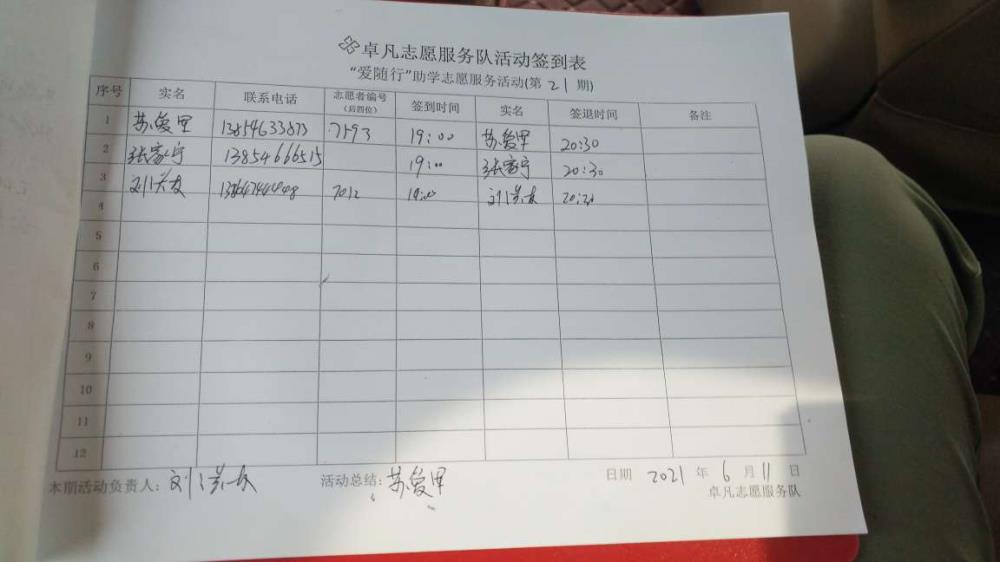 卓凡志愿服务队活动签到表
“爱随行”助学志愿服务活动(第 21 期)
序号 实名 联系电话 志愿者编号(后四位) 签到时间 实名 签退时间 备注
1 苏爱里 13854633873 7593 19:00 苏爱里 20:30
2 张家宁 13854666515 19:00 张家宁 20:30
3 刘洪友 7012 19:00 刘洪友
4
5
6
7
8
9
10
11
12
本期活动负责人: 刘洪友 活动总结: 苏爱里 日期 2021 年 6 月 11 日
卓凡志愿服务队